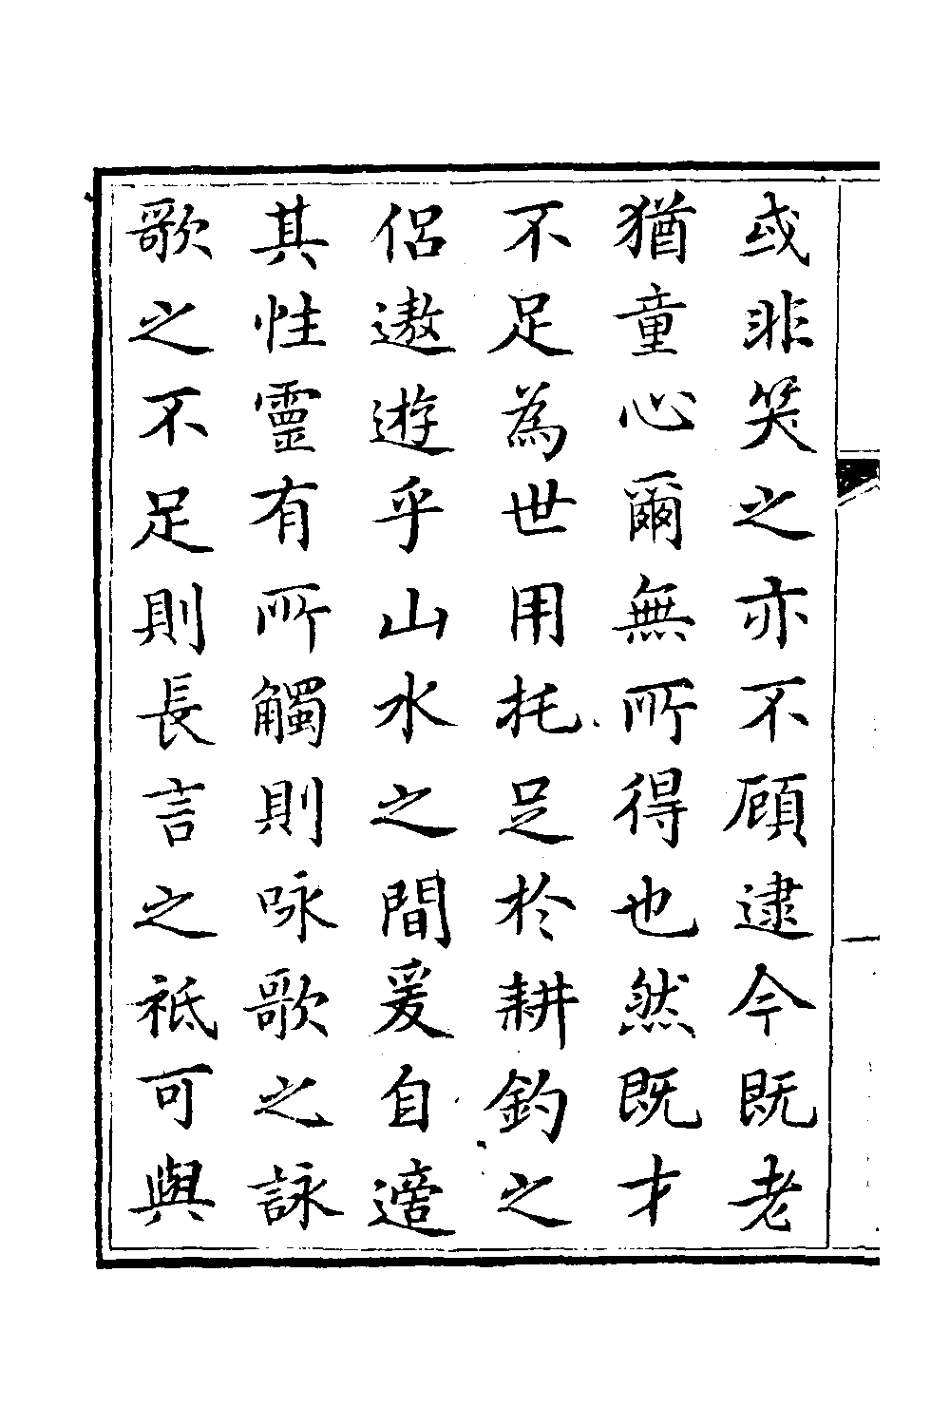 或非笑之亦不顧逮今既老
猶童心爾無所得也然既才
不足為世用托足於耕釣之
侶遨遊乎山水之間爰自適
其性靈有所觸則咏歌之詠
歌之不足則長言之祗可與